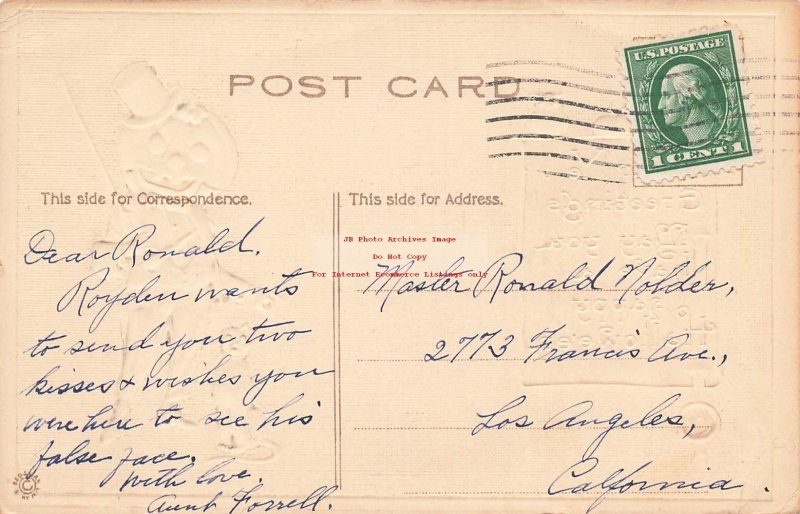 POST CARD
U.S. POSTAGE
1 CENT 1
This side for Correspondence.
This side for Address.
JB Photo Archives Image
Do Not Copy
For Internet Ecommerce Listings only
Dear Ronald.
Royden wants
to send you two
kisses & wishes you
were here to see his
false face.
With love.
Aunt Forrell.
Master Ronald Nolder,
2773 Francis Ave.,
Los Angeles,
California.